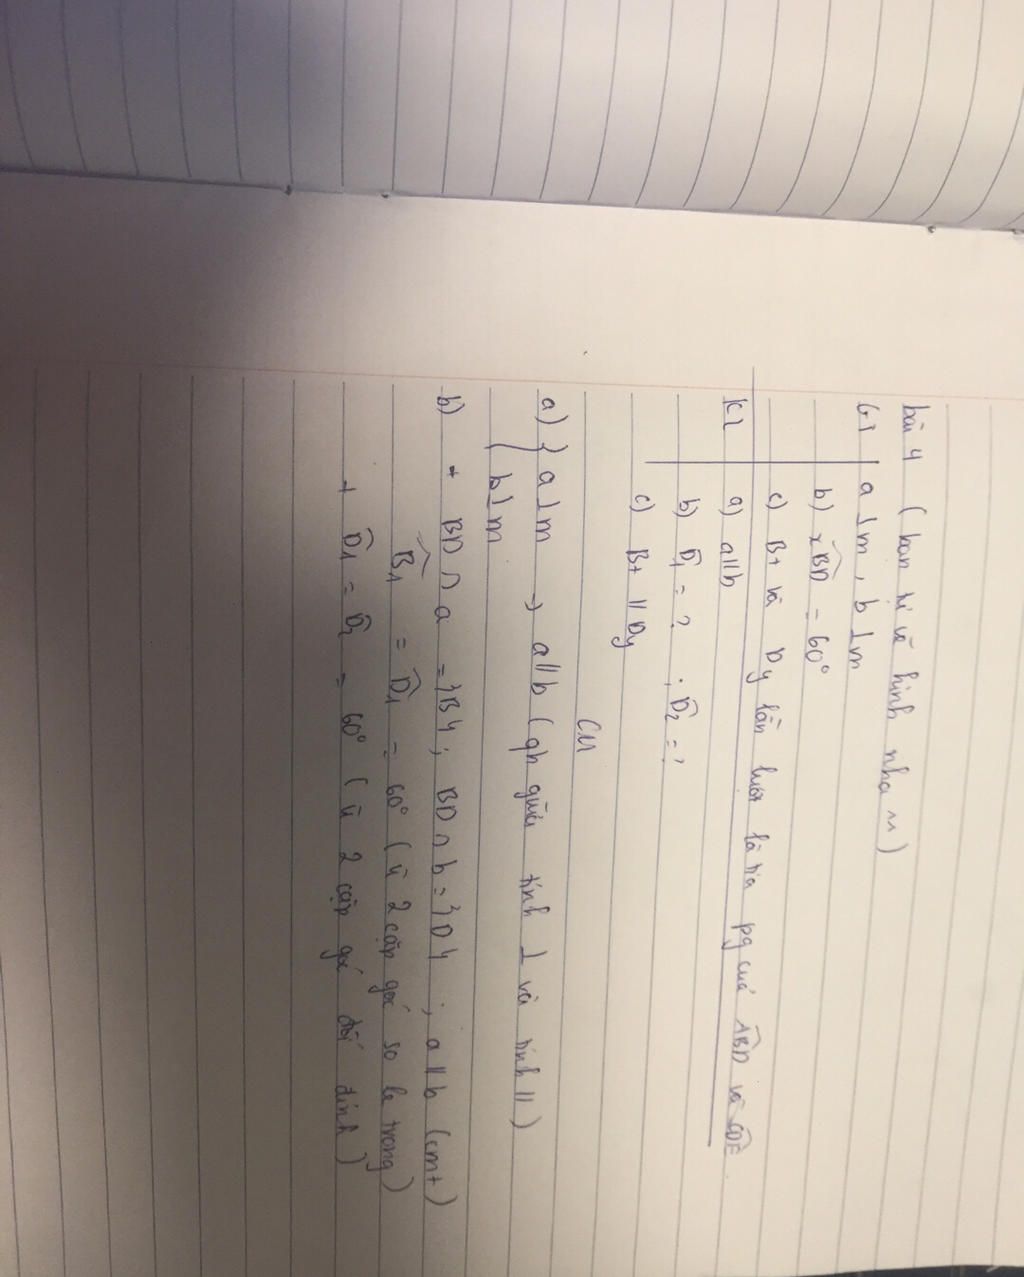 bài 4 ( bạn tự vẽ hình nha ~~ )
GT a ⊥ m , b ⊥ m
b) xBD̂ = 60°
c) Bt và Dy lần lượt là tia pg của ABD̂ và CDÊ
KL a) a // b
b) D̂1 = ? ; D̂2 = ?
c) Bt // Dy
CM
a) { a ⊥ m → a // b ( qh giữa tính ⊥ và tính // )
{ b ⊥ m
b) + BD ∩ a = {B} ; BD ∩ b = {D} ; a // b (cmt)
B̂1 = D̂1 = 60° ( vì 2 cặp góc so le trong )
+ D̂1 = D̂2 = 60° ( vì 2 cặp góc đối đỉnh )